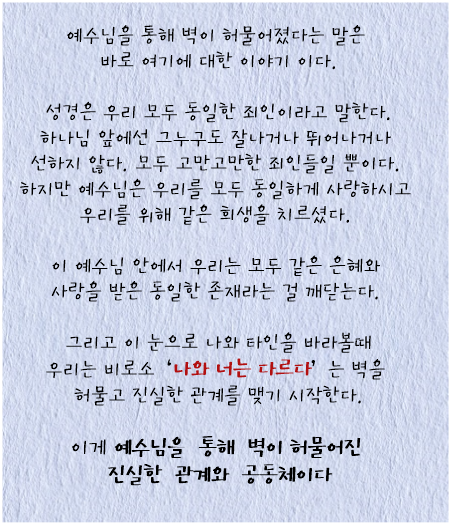 예수님을 통해 벽이 허물어졌다는 말은
바로 여기에 대한 이야기 이다.
성경은 우리 모두 동일한 죄인이라고 말한다.
하나님 앞에선 그누구도 잘나거나 뛰어나거나
선하지 않다. 모두 고만고만한 죄인들일 뿐이다.
하지만 예수님은 우리를 모두 동일하게 사랑하시고
우리를 위해 같은 희생을 치르셨다.
이 예수님 안에서 우리는 모두 같은 은혜와
사랑을 받은 동일한 존재라는 걸 깨닫는다.
그리고 이 눈으로 나와 타인을 바라볼때
우리는 비로소 '나와 너는 다르다' 는 벽을
허물고 진실한 관계를 맺기 시작한다.
이게 예수님을 통해 벽이 허물어진
진실한 관계와 공동체이다